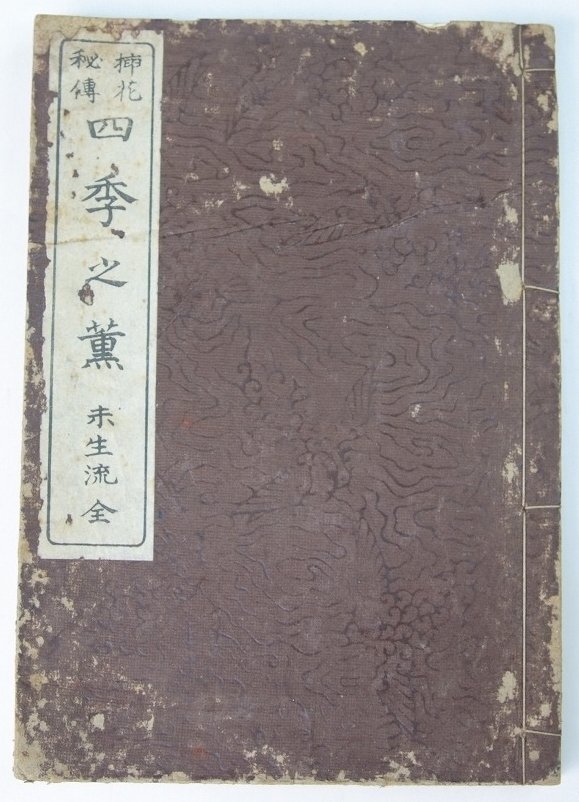 挿花
秘傳
四季之薫
未生流
全